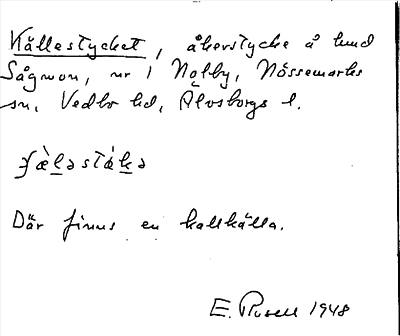 Källestycket, åkerstycke å lund
Sågmon, nr 1 Nolby, Nössemarks
sn, Vedbo hd, Älvsborgs l.
Där finns en kallkälla.
E. 1948